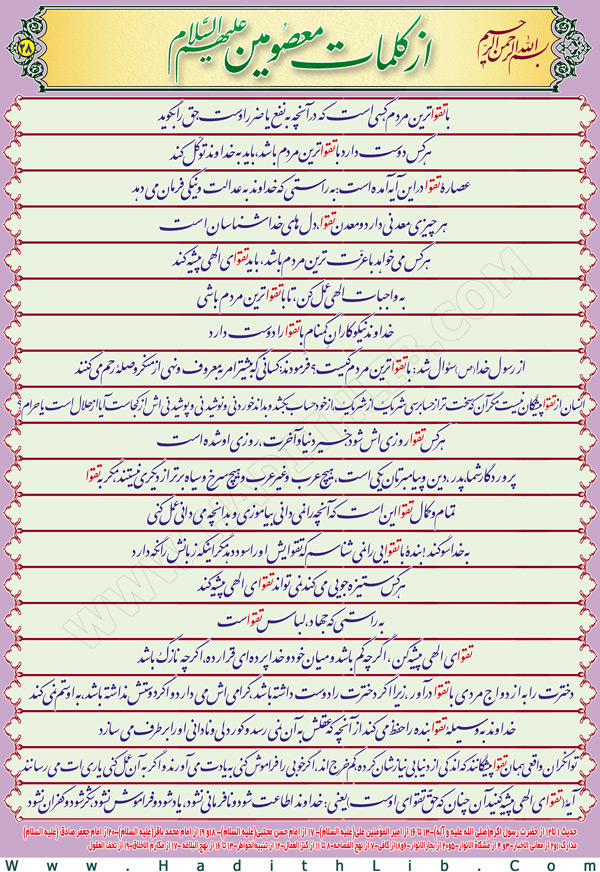 بسم الله الرحمن الرحیم
از کلمات معصومین علیهم السَّلام
۳۸
با تقواترین مردم کسی است که در آنچه به نفع یا ضرر اوست، حق را بگوید
هرکس دوست دارد با تقواترین مردم باشد، باید به خداوند توکّل کند
عصاره تقوا در این آیه آمده است: به راستی که خداوند به عدالت و نیکی فرمان می دهد
هر چیزی معدنی دارد و معدن تقوا، دل های خداشناسان است
هرکس می خواهد با عزّت ترین مردم باشد، باید تقوای الهی پیشه کند
به واجبات الهی عمل کن، تا با تقواترین مردم باشی
خداوند نیکوکاران گمنام با تقوا را دوست دارد
از رسول خدا(ص) سؤال شد: با تقواترین مردم کیست؟ فرمودند: کسانی که بیشتر امر به معروف و نهی از منکر و صله رحم می کنند
انسان از تقوا پیشگان نیست مگر آن که سخت تر از حسابرسی شریک از شریک، از خود حساب بکشد و بداند خوردنی و نوشیدنی و پوشیدنی اش از کجاست آیا از حلال است یا حرام؟
هرکس تقوا روزی اش شود خیر دنیا و آخرت، روزی او شده است
پروردگار شما، پدر، دین و پیامبرتان یکی است، هیچ عرب و غیر عرب و هیچ سرخ و سیاه برتر از دیگری نیستند، مگر به تقوا
تمام و کمال تقوا این است که آنچه را نمی دانی بیاموزی و بدانچه می دانی عمل کنی
به خدا سوگند! بنده با تقوایی را نمی شناسم که تقوایش او را سود دهد مگر اینکه زبانش را نگه دارد
هرکس ستیزه جویی می کند، نمی تواند تقوای الهی پیشه کند
به راستی که جهاد، لباس تقوا است
تقوای الهی پیشه کن، اگر چه کم باشد و میان خود و خدا پرده ای قرار ده، اگر چه نازک باشد
دخترت را به ازدواج مردی با تقوا درآور، زیرا اگر دخترت را دوست داشته باشد، گرامی اش می دارد و اگر دوستش نداشته باشد، به او ستم نمی کند
خداوند به وسیله تقوا بنده را حفظ می کند از آنچه که عقلش به آن نمی رسد و کوردلی و نادانی او را برطرف می سازد
توانگران واقعی همان تقوا پیشگانند که اندکی از دنیا بی نیازشان کرده، کم خرج اند، اگر خوبی را فراموش کنی به یادت می آورند و اگر به آن عمل کنی یاری ات می رسانند
آیه: تقوای الهی پیشه کنید آن چنان که حق تقوای اوست، یعنی: خداوند اطاعت شود و نافرمانی نشود، یاد شود و فراموش نشود، شکر شود و کفران نشود
حدیث ۱ تا ۱۲ از حضرت رسول اکرم(صلی الله علیه و آله)-۱۳ تا ۱۶ از امیر المؤمنین علی(علیه السلام)- ۱۷ از امام حسن مجتبی(علیه السلام)-۱۸ و ۱۹ از امام محمد باقر(علیه السلام)-۲۰ از امام جعفر صادق (علیه السلام)
Www.HadithLib.Com